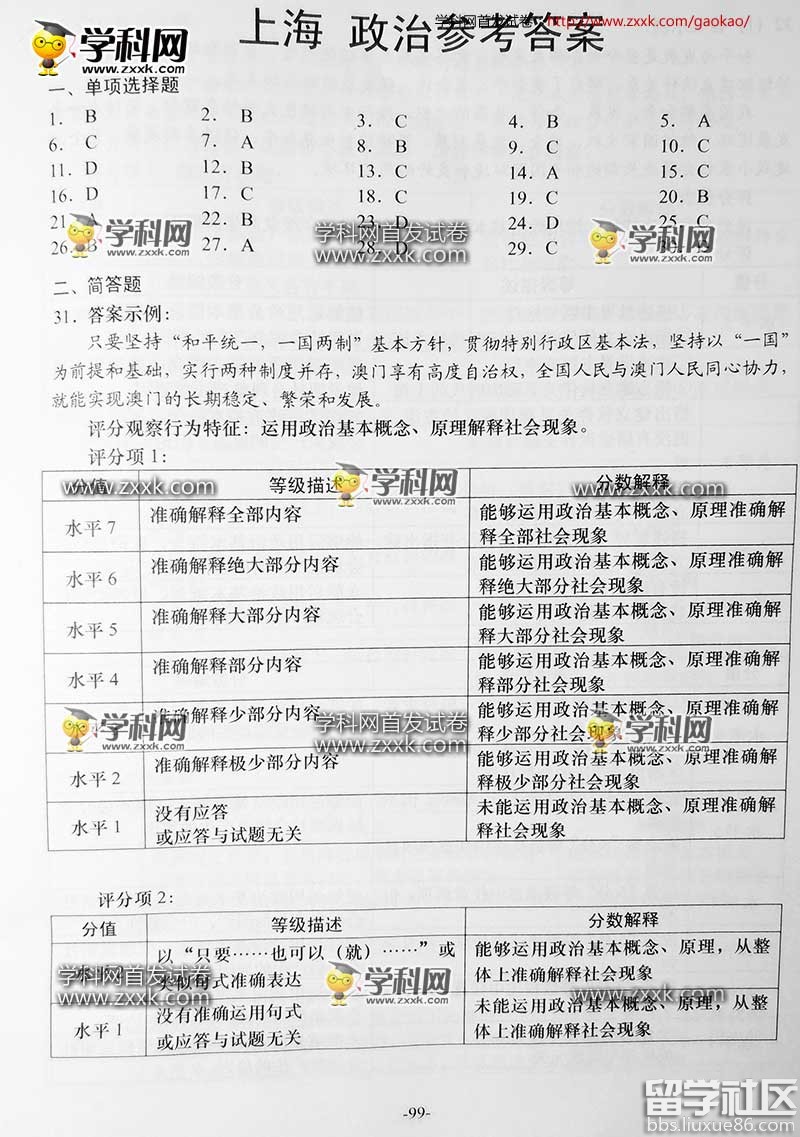 学科网首发试卷：http://www.zxxk.com/gaokao/
学科网
www.zxxk.com
上海 政治参考答案
一、单项选择题
1. B 2. B 3. C 4. B 5. A
6. C 7. A 8. B 9. C 10. C
11. D 12. B 13. C 14. A 15. C
16. D 17. C 18. C 19. C 20. B
21. A 22. B 23. D 24. D 25. C
学科网 学科网首发试卷 学科网
26. B 27. A 28. D 29. C
www.zxxk.com www.zxxk.com www.zxxk.com
二、简答题
31. 答案示例：
只要坚持“和平统一，一国两制”基本方针，贯彻特别行政区基本法，坚持以“一国”
为前提和基础，实行两种制度并存，澳门享有高度自治权，全国人民与澳门人民同心协力，
就能实现澳门的长期稳定、繁荣和发展。
评分观察行为特征：运用政治基本概念、原理解释社会现象。
评分项 1：
学科网首发试卷 学科网 学科网首发试卷
分值 等级描述 分数解释
www.zxxk.com www.zxxk.com www.zxxk.com
水平 7 准确解释全部内容 能够运用政治基本概念、原理准确解
释全部社会现象
水平 6 准确解释绝大部分内容 能够运用政治基本概念、原理准确解
释绝大部分社会现象
水平 5 准确解释大部分内容 能够运用政治基本概念、原理准确解
释大部分社会现象
水平 4 准确解释部分内容 能够运用政治基本概念、原理准确解
释部分社会现象
准确解释少部分内容 能够运用政治基本概念、原理准确解
学科网 学科网首发试卷 学科网
释少部分社会现象
www.zxxk.com www.zxxk.com www.zxxk.com
水平 2 准确解释极少部分内容 能够运用政治基本概念、原理准确解
释极少部分社会现象
水平 1 没有应答 未能运用政治基本概念、原理准确解
或应答与试题无关 释社会现象
评分项 2：
分值 等级描述 分数解释
以“只要……也可以（就）……”或 能够运用政治基本概念、原理，从整
水平 2 类似句式准确表达 体上准确解释社会现象
学科网首发试卷 学科网 学科网首发试卷
www.zxxk.com www.zxxk.com www.zxxk.com
水平 1 没有准确运用句式 未能运用政治基本概念、原理，从整
或应答与试题无关 体上准确解释社会现象
-99-
留学社区
bbs.liuxue86.com